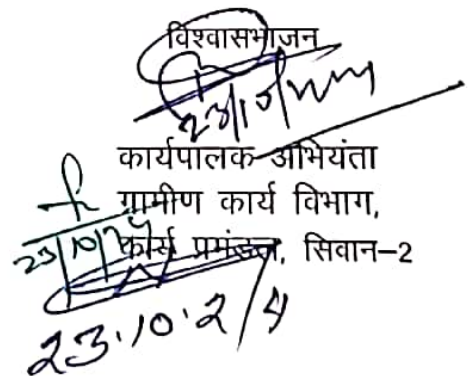 विश्वासभाजन
कार्यपालक अभियंता
ग्रामीण कार्य विभाग,
23/10/24 कार्य प्रमंडल, सिवान-2
23.10.24